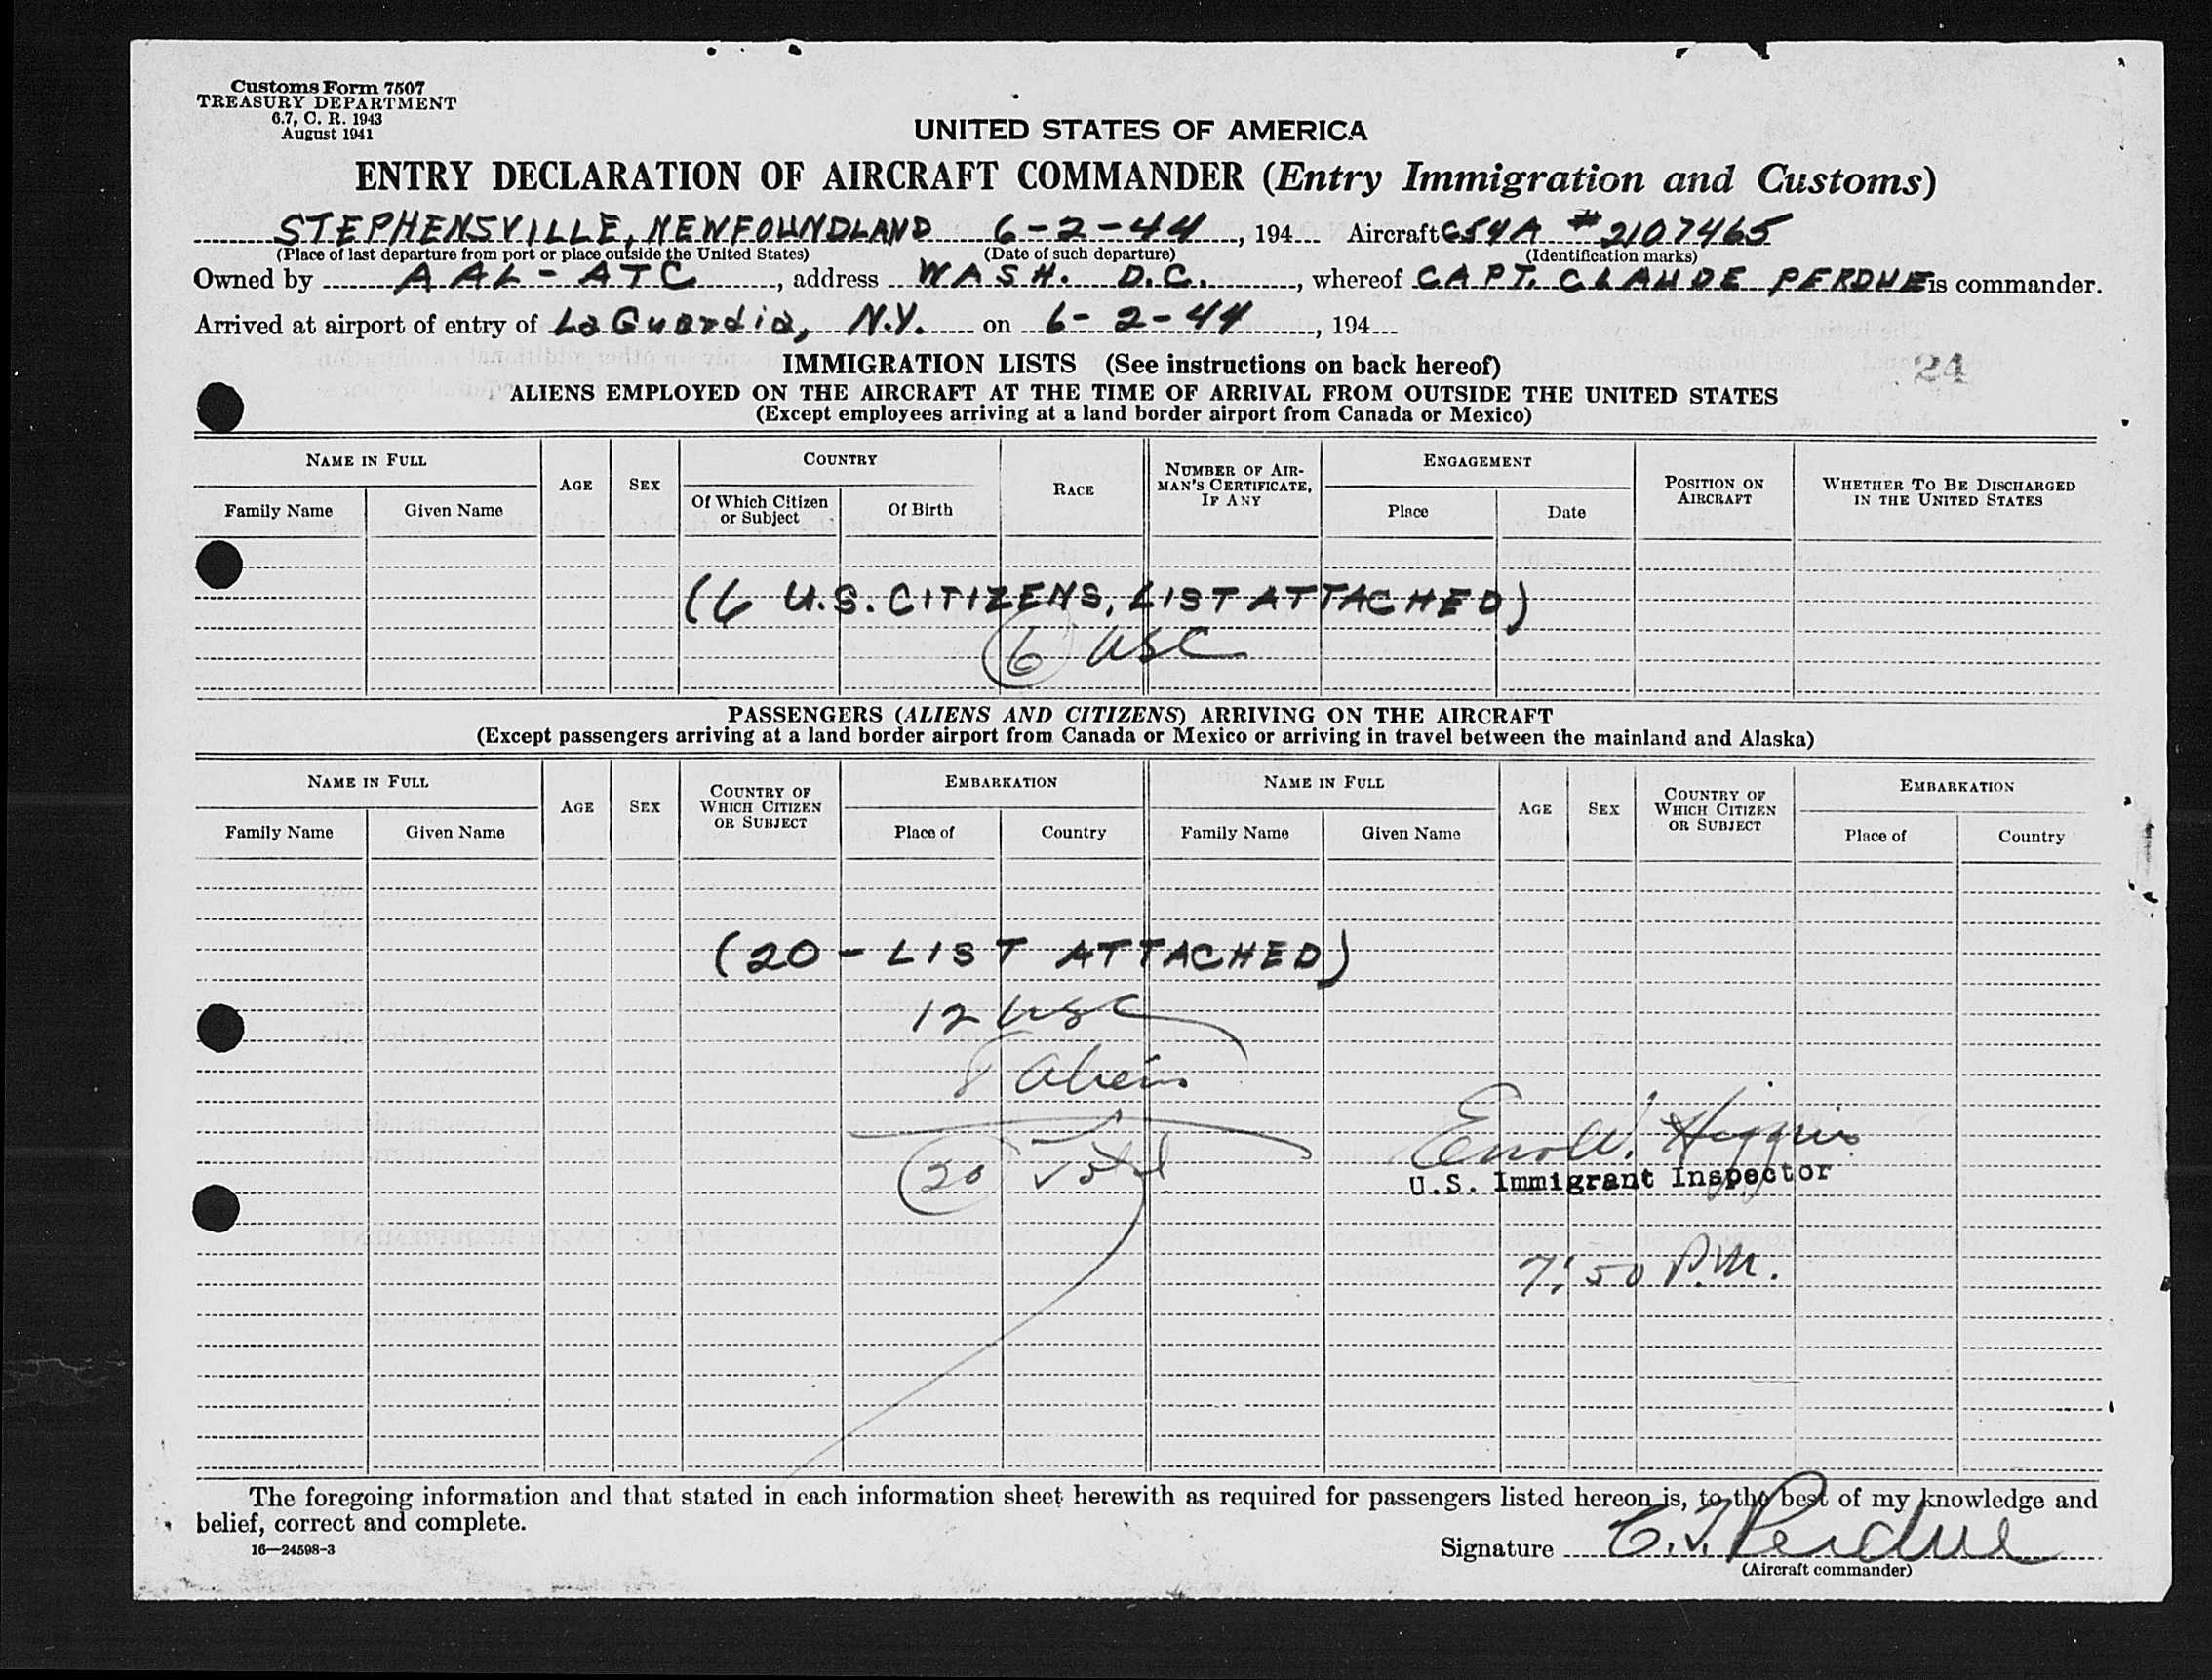 Customs Form 7507
TREASURY DEPARTMENT
6.7, C. R. 1943
August 1941
UNITED STATES OF AMERICA
ENTRY DECLARATION OF AIRCRAFT COMMANDER (Entry Immigration and Customs)
STEPHENSVILLE, NEWFOUNDLAND 6-2-44, 194 Aircraft C54A #2107465
(Place of last departure from port or place outside the United States) (Date of such departure) (Identification marks)
Owned by AAL-ATC, address WASH. D.C., whereof CAPT. CLAUDE PERDUE is commander.
Arrived at airport of entry of LaGuardia, N.Y. on 6-2-44, 194
IMMIGRATION LISTS (See instructions on back hereof)
24
ALIENS EMPLOYED ON THE AIRCRAFT AT THE TIME OF ARRIVAL FROM OUTSIDE THE UNITED STATES
(Except employees arriving at a land border airport from Canada or Mexico)
NAME IN FULL
Family Name Given Name
AGE
SEX
COUNTRY
Of Which Citizen or Subject
Of Birth
RACE
NUMBER OF AIRMAN'S CERTIFICATE, IF ANY
ENGAGEMENT
Place Date
POSITION ON AIRCRAFT
WHETHER TO BE DISCHARGED IN THE UNITED STATES
(6 U.S. CITIZENS, LIST ATTACHED)
6 USC
PASSENGERS (ALIENS AND CITIZENS) ARRIVING ON THE AIRCRAFT
(Except passengers arriving at a land border airport from Canada or Mexico or arriving in travel between the mainland and Alaska)
NAME IN FULL
Family Name Given Name
AGE
SEX
COUNTRY OF WHICH CITIZEN OR SUBJECT
EMBARKATION
Place of Country
NAME IN FULL
Family Name Given Name
AGE
SEX
COUNTRY OF WHICH CITIZEN OR SUBJECT
EMBARKATION
Place of Country
(20 - LIST ATTACHED)
12 USC
8 aliens
20 Total
Higgins
U.S. Immigrant Inspector
7:50 P.M.
The foregoing information and that stated in each information sheet herewith as required for passengers listed hereon is, to the best of my knowledge and
belief, correct and complete.
16—24598-3
Signature C. J. Perdue
(Aircraft commander)